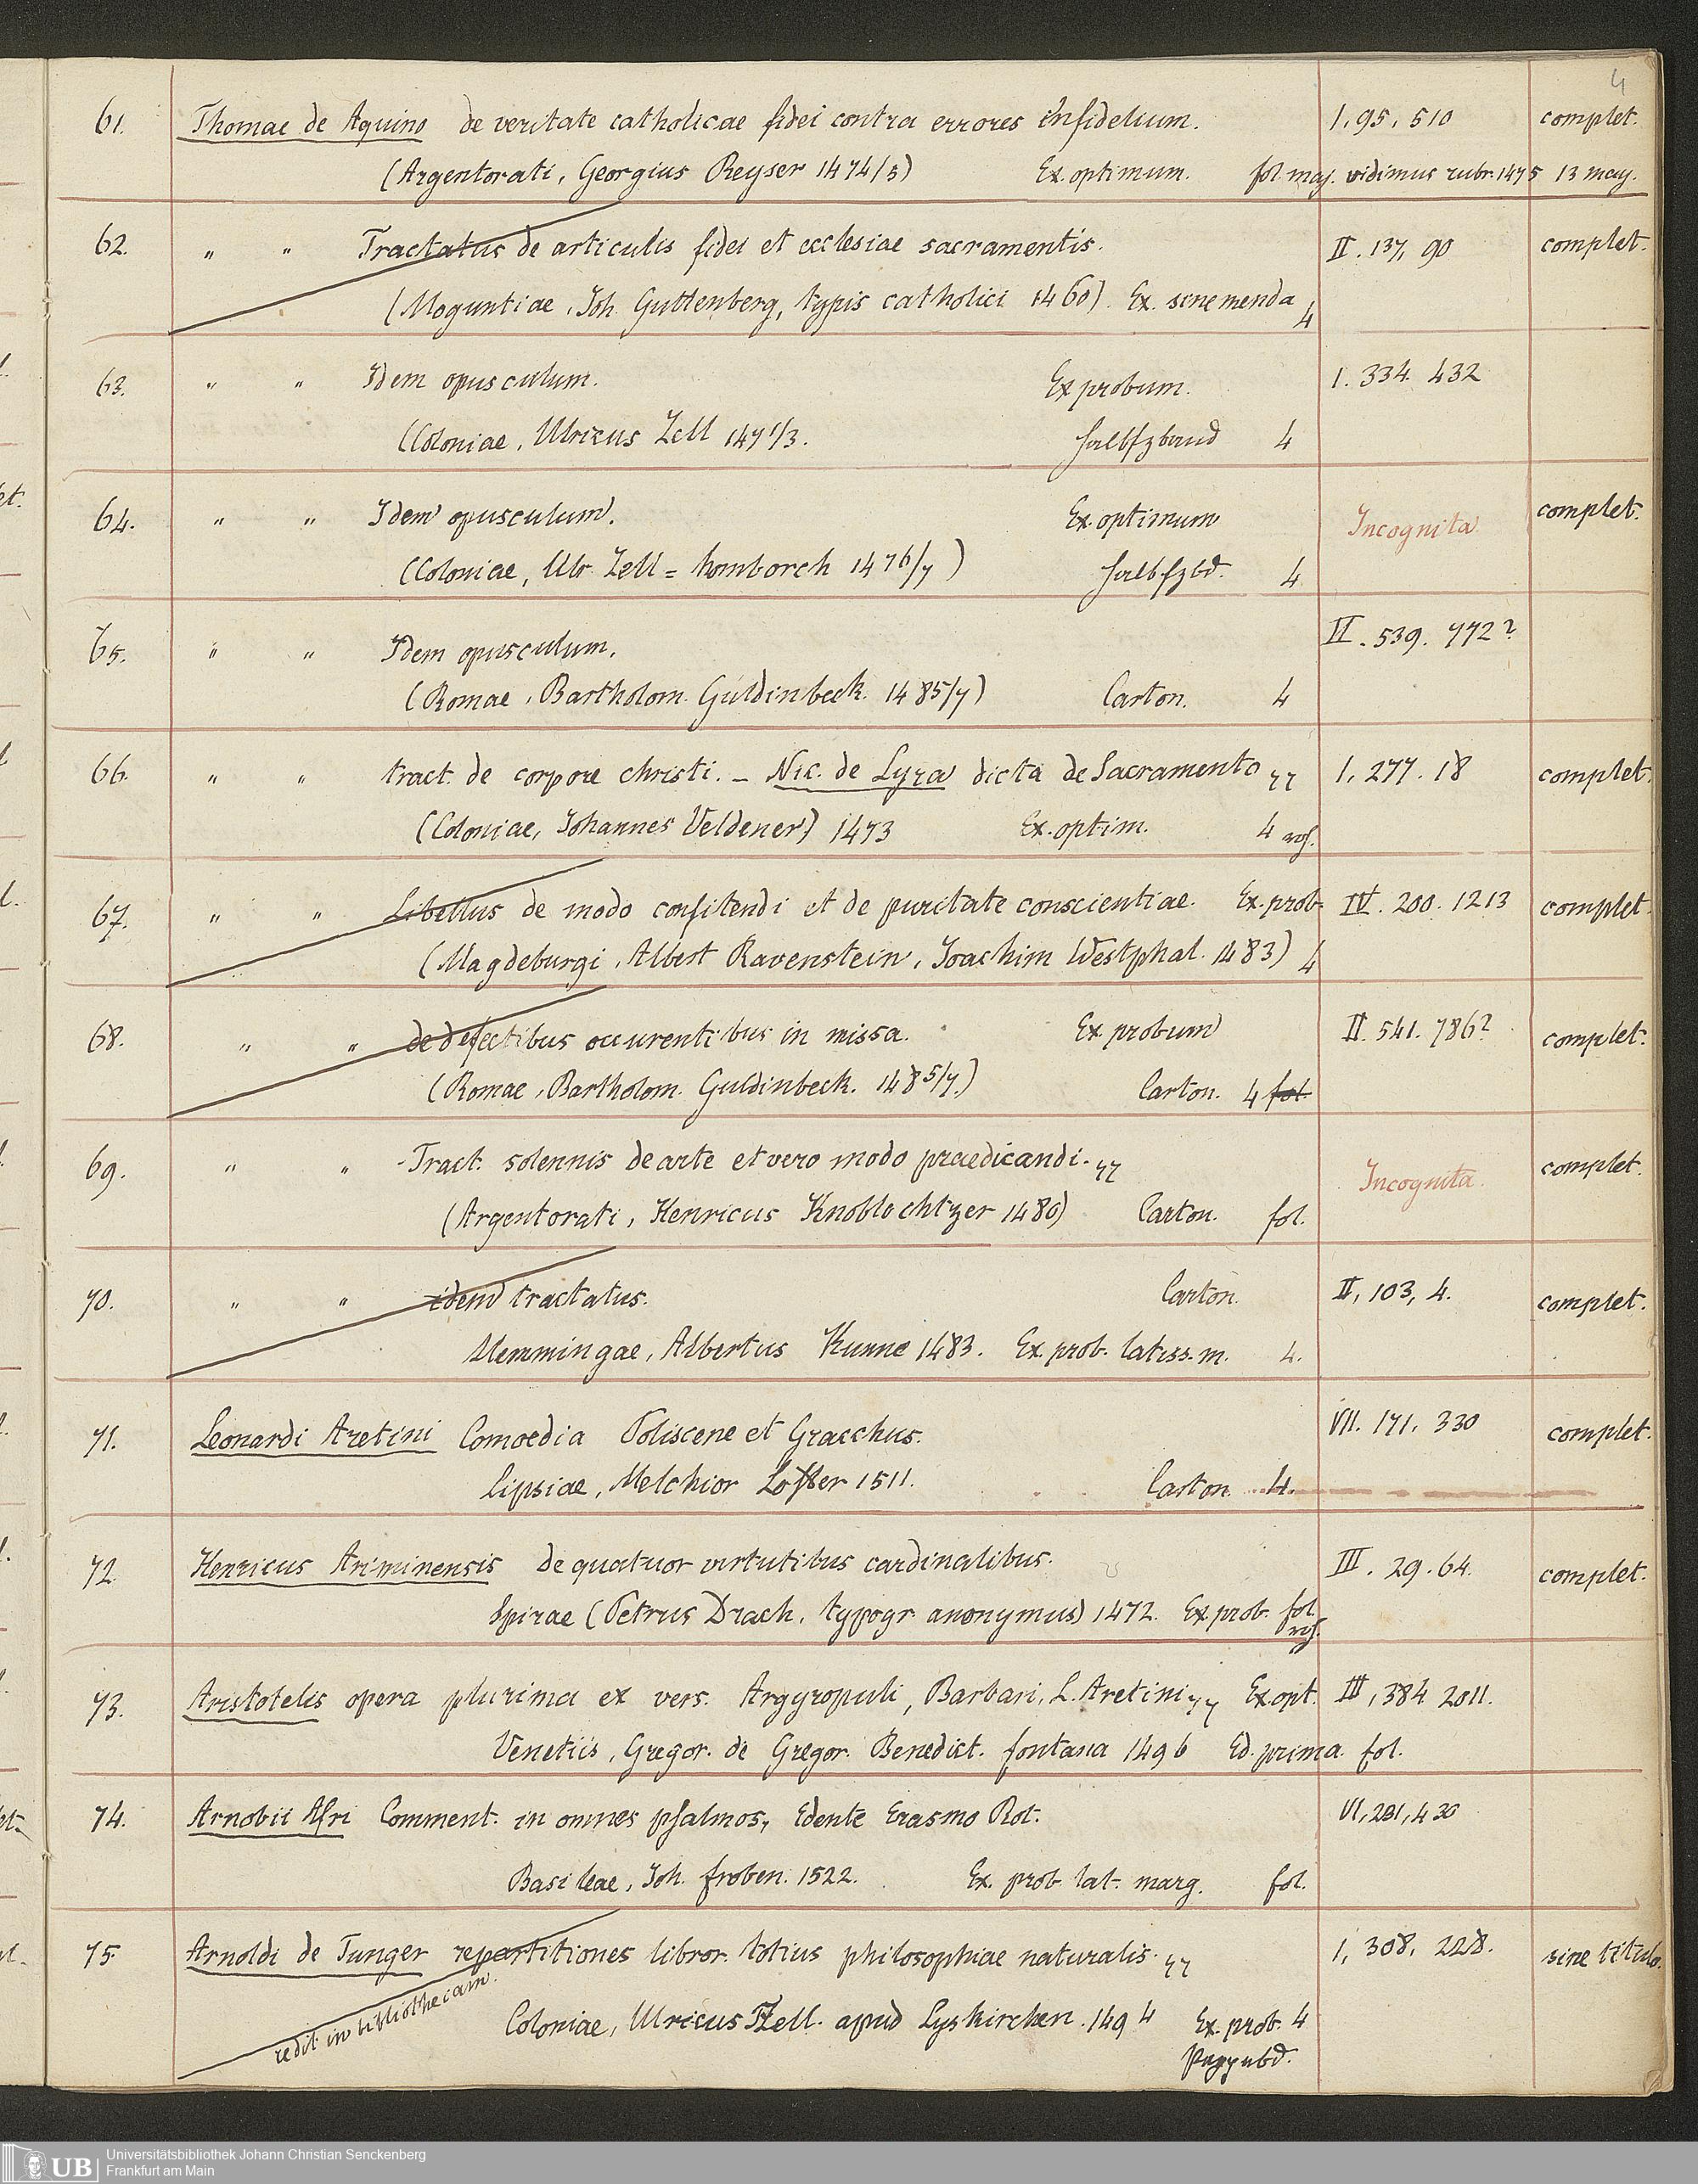 4
61. Thomae de Aquino de veritate catholicae fidei contra errores infidelium. I. 95. 510 complet.
(Argentorati, Georgius Reyser 1474/5) Ex. optimum. fol. maj. vidimus rubr. 1475 13 may.
62. " " Tractatus de articulis fidei et ecclesiae sacramentis. II. 137. 90 complet.
(Moguntiae, Joh. Guttenberg, typis catholici 1460). Ex. sine menda 4
63. " " Idem opusculum. Ex probum. I. 334. 432
(Coloniae, Ulricus Zell 1471/3. Halbfzband 4
64. " " Idem opusculum. Ex. optimum Incognita complet.
(Coloniae, Ulr. Zell = homborch 1476/7) Halbfzbd. 4
65. " " Idem opusculum. II. 539. 772?
(Romae, Bartholom. Guldinbeck. 1485/7) Carton. 4
66. " " tract. de corpore christi. – Nic. de Lyra dicta de Sacramento I. 277. 18 complet.
(Coloniae, Johannes Veldener) 1473 Ex. optim. 4
67. " " Libellus de modo confitendi et de puritate conscientiae. Ex. prob. IV. 200. 1213 complet.
(Magdeburgi, Albert Ravenstein, Joachim Westphal. 1483) 4
68. " " de defectibus occurentibus in missa. Ex probum II. 541. 786? complet.
(Romae, Bartholom. Guldinbeck. 1485/7.) Carton. 4 fol.
69. " " Tract. solennis de arte et vero modo praedicandi. Incognita. complet.
(Argentorati, Henricus Knoblochtzer 1480) Carton. fol.
70. " " idem tractatus. Carton. II, 103, 4. complet.
Memmingae, Albertus Kunne 1483. Ex. prob. latiss. m. 4.
71. Leonardi Aretini Comoedia Poliscene et Gracchus. VII. 171. 330 complet.
Lipsiae, Melchior Lotter 1511. Carton. 4.
72 Henricus Ariminensis de quatuor virtutibus cardinalibus. III. 29. 64. complet.
Spirae (Petrus Drach, typogr anonymus) 1472. Ex prob. fol.
73. Aristotelis opera plurima ex vers. Argyropuli, Barbari, L. Aretini Ex. opt. III, 384 2011.
Venetiis, Gregor. de Gregor. Benedict. fontana 1496 Ed. prima. fol.
74. Arnobii Afri Comment. in omnes psalmos, Edente Erasmo Rot. VI, 291, 430
Basileae, Joh. Froben. 1522. Ex. prob. lat. marg. fol.
75. Arnoldi de Tunger repartitiones libror. totius philosophiae naturalis. I, 308. 228. sine titulo.
redit in bibliothecam.
Coloniae, Ulricus Zell. apud Lyskirchen. 1494 Ex. prob. 4
Pappbd.
UB Universitätsbibliothek Johann Christian Senckenberg
Frankfurt am Main